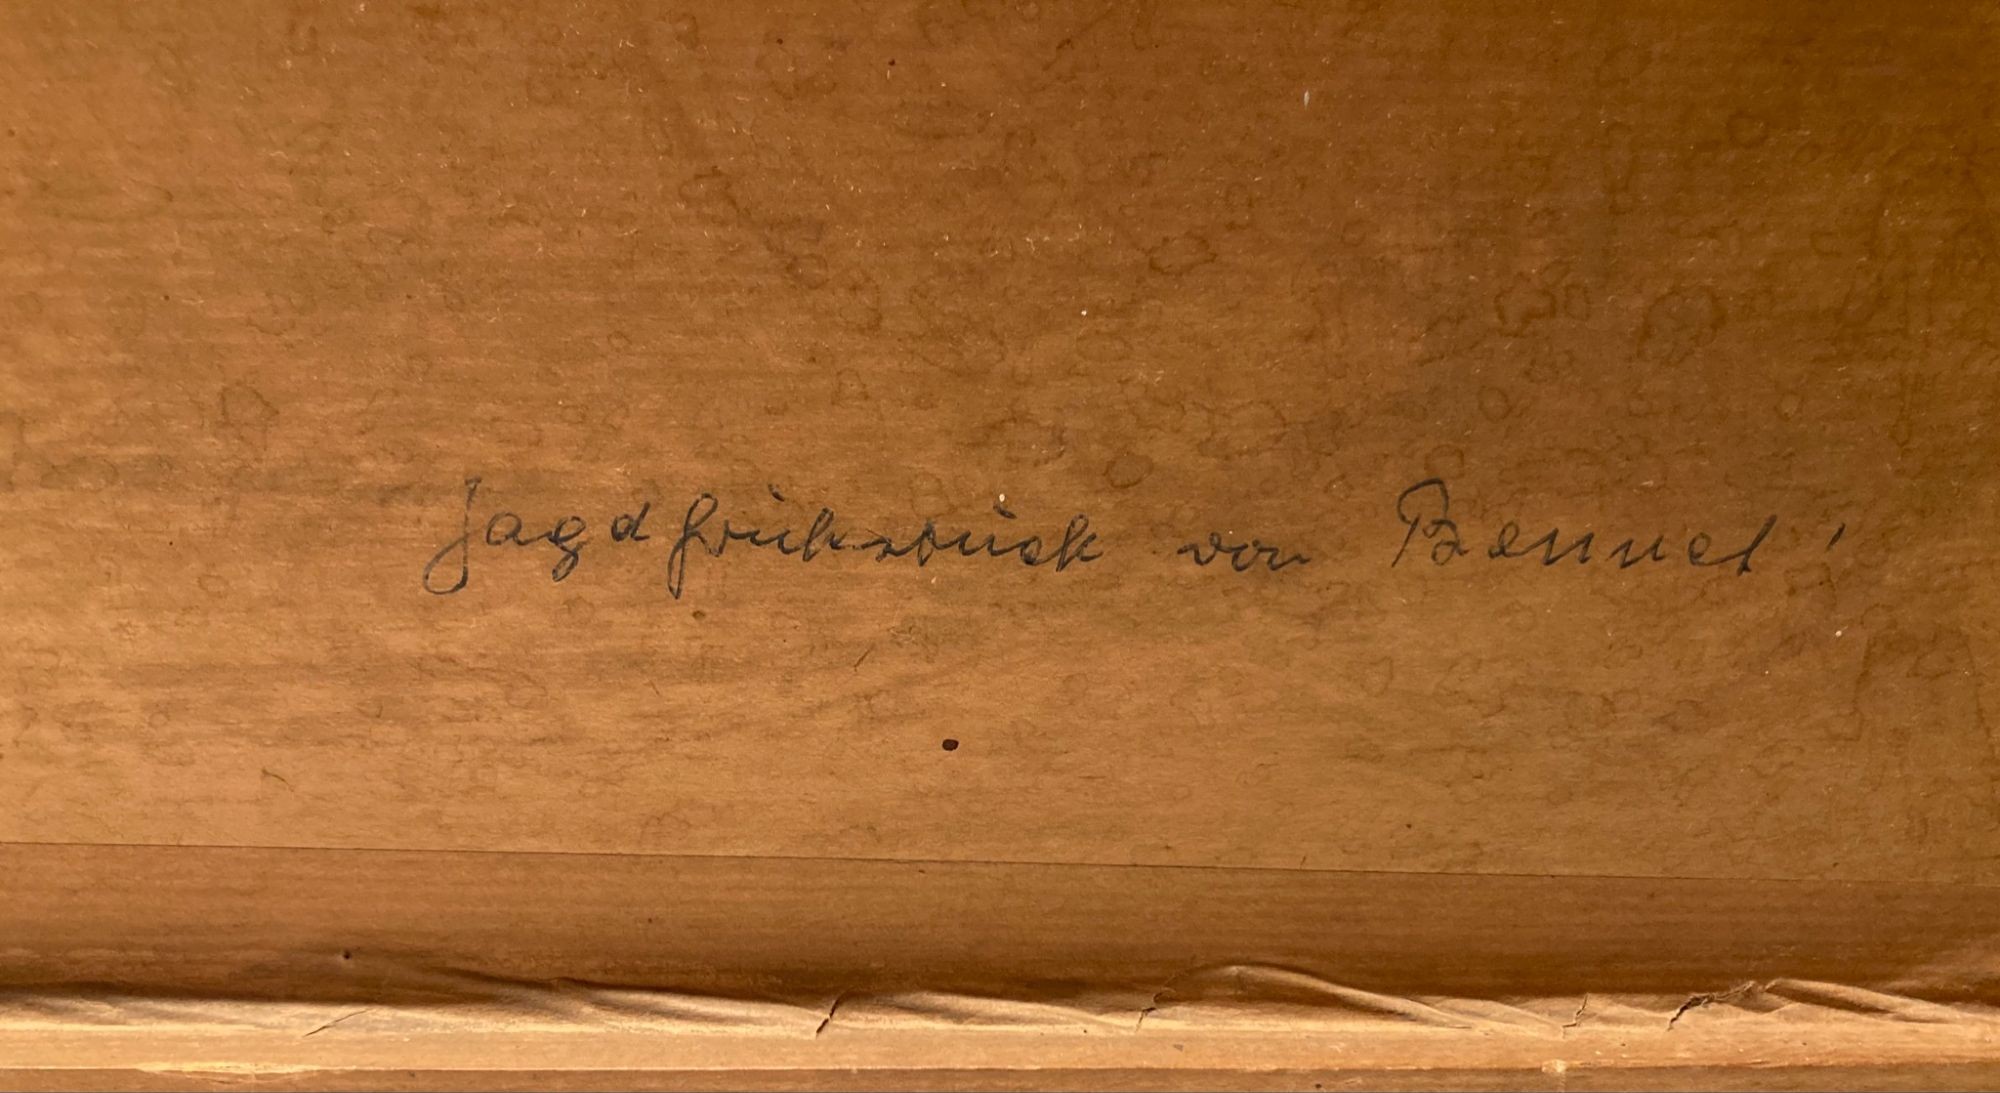 Jagdfrühstück von Bennet'